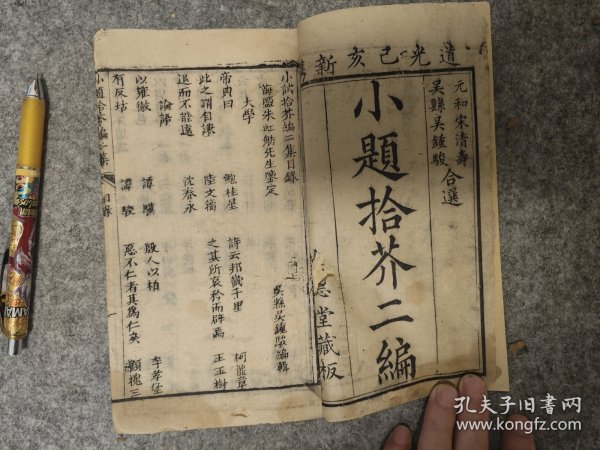 道光己亥新
元和宋清壽
吳縣吳鍾駿合選
小題拾芥二編
堂藏板
小試拾芥編二集目錄
海鹽朱虹舫先生鑒定
吳縣吳鍾駿編輯
大學
帝典曰 鮑桂星
詩云邦畿千里 柯龍章
此之謂自謙 陸文
之其所哀矜而辟焉 王玉樹
退而不能遠 沈春永
論語
以雍徹 譚驥
殷人以柏 李孝堡
有反坫 譚駿
惡不仁者其為仁矣 顧槐三
小題拾芥編二集 目錄
孔夫子旧書网
kongfz.com